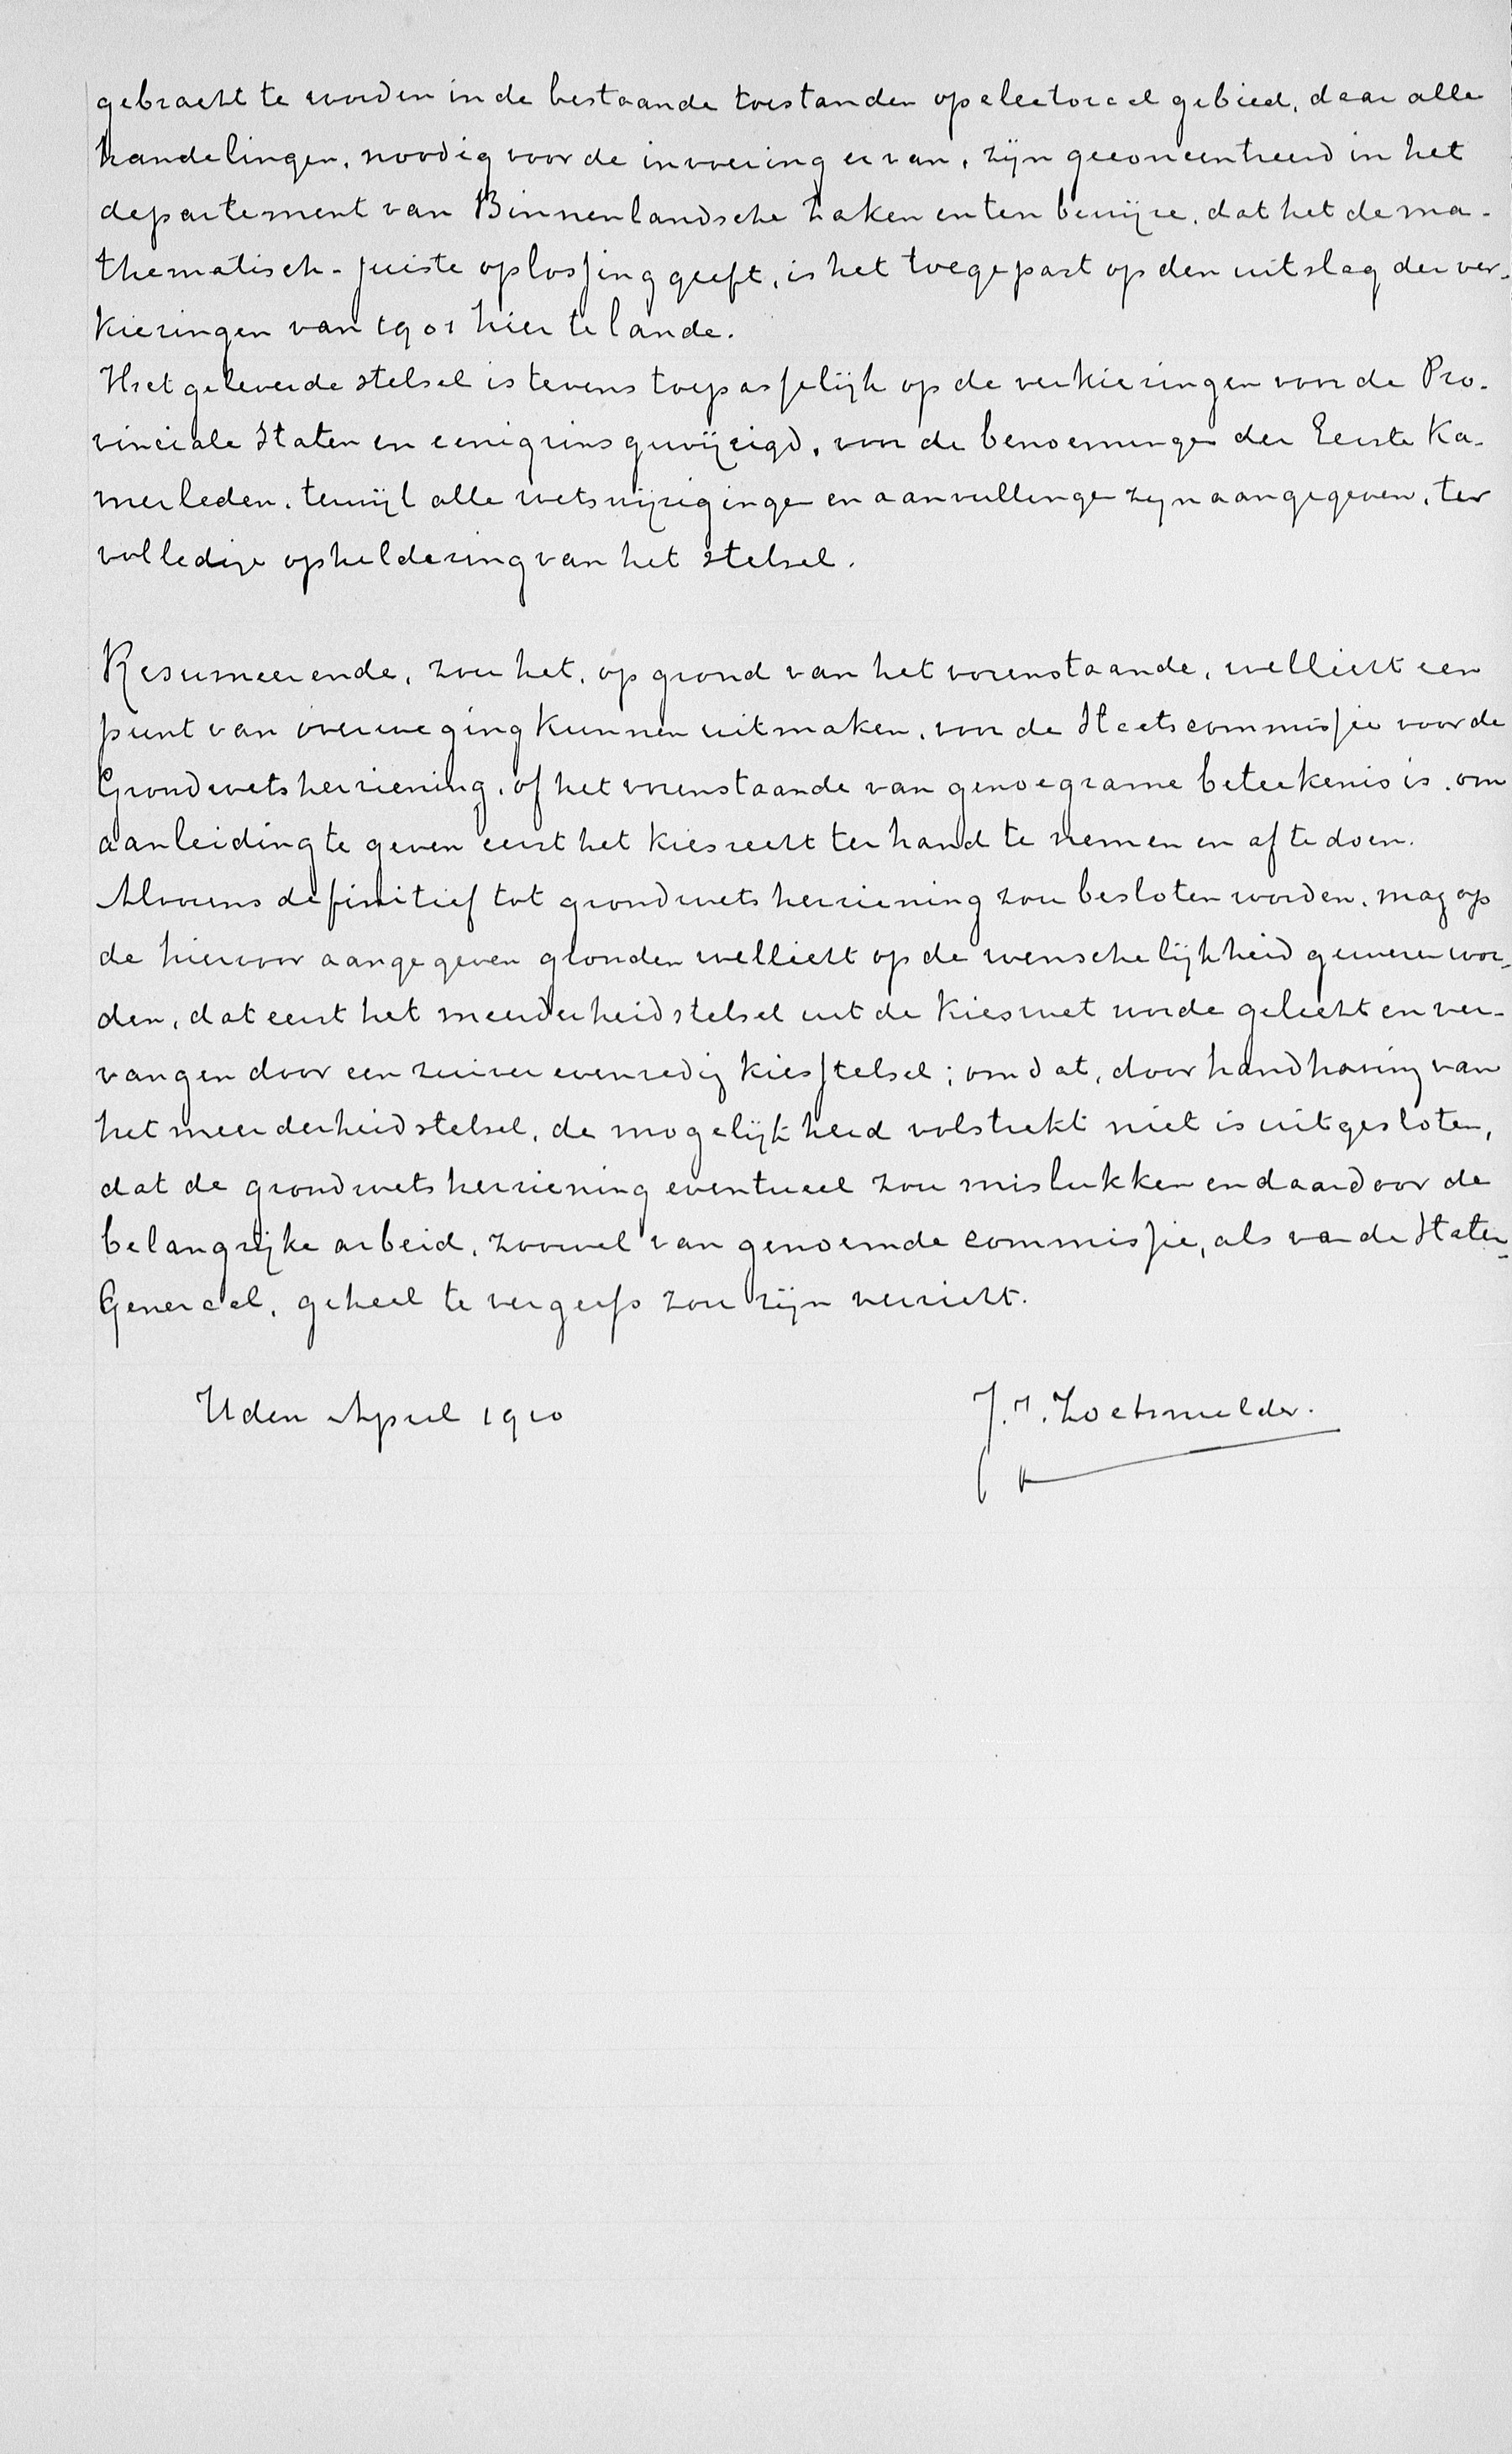 gebracht te worden in de bestaande toestanden op electoraal gebied, daar alle
handelingen, noodig voor de invoering ervan, zijn geconcentreerd in het
departement van Binnenlandsche Zaken en ten bewijze, dat het de ma-
thematisch-juiste oplossing geeft, is het toegepast op den uitslag der ver-
kiezingen van 1901 hier te lande.
Het geleverde stelsel is tevens toepasselijk op de verkiezingen voor de Pro-
vinciale Staten en eenigzins gewijzigd, voor de benoemingen der Eerste Ka-
merleden, terwijl alle wetswijzigingen en aanvullingen zijn aangegeven, ter
volledige opheldering van het stelsel.
Resumeerende, zou het, op grond van het vorenstaande, wellicht een
punt van overweging kunnen uitmaken, voor de Staatscommissie voor de
Grondwetsherziening, of het vorenstaande van genoegzame beteekenis is, om
aanleiding te geven eerst het kiesrecht ter hand te nemen en af te doen.
Alvorens definitief tot grondwetsherziening zou besloten worden, mag op
de hiervoor aangegeven gronden wellicht op de wenschelijkheid gewezen wor-
den, dat eerst het meerderheidstelsel uit de kieswet worde gelicht en ver-
vangen door een zuiver evenredig kiesstelsel; omdat, door handhaving van
het meerderheidstelsel, de mogelijkheid volstrekt niet is uitgesloten,
dat de grondwetsherziening eventueel zou mislukken en daardoor de
belangrijke arbeid, zoowel van genoemde commissie, als van de Staten-
Generaal, geheel te vergeefs zou zijn verricht.
Uden April 1910
J. J. Zoetmulder.